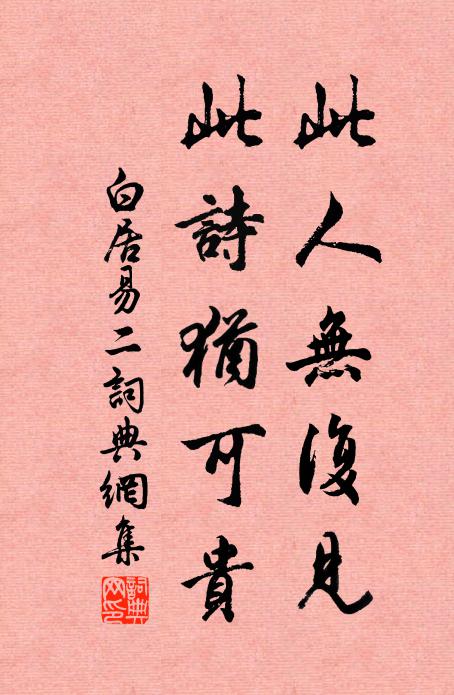 此人無復見
此詩猶可貴
白居易二詞典網集
詞典网印